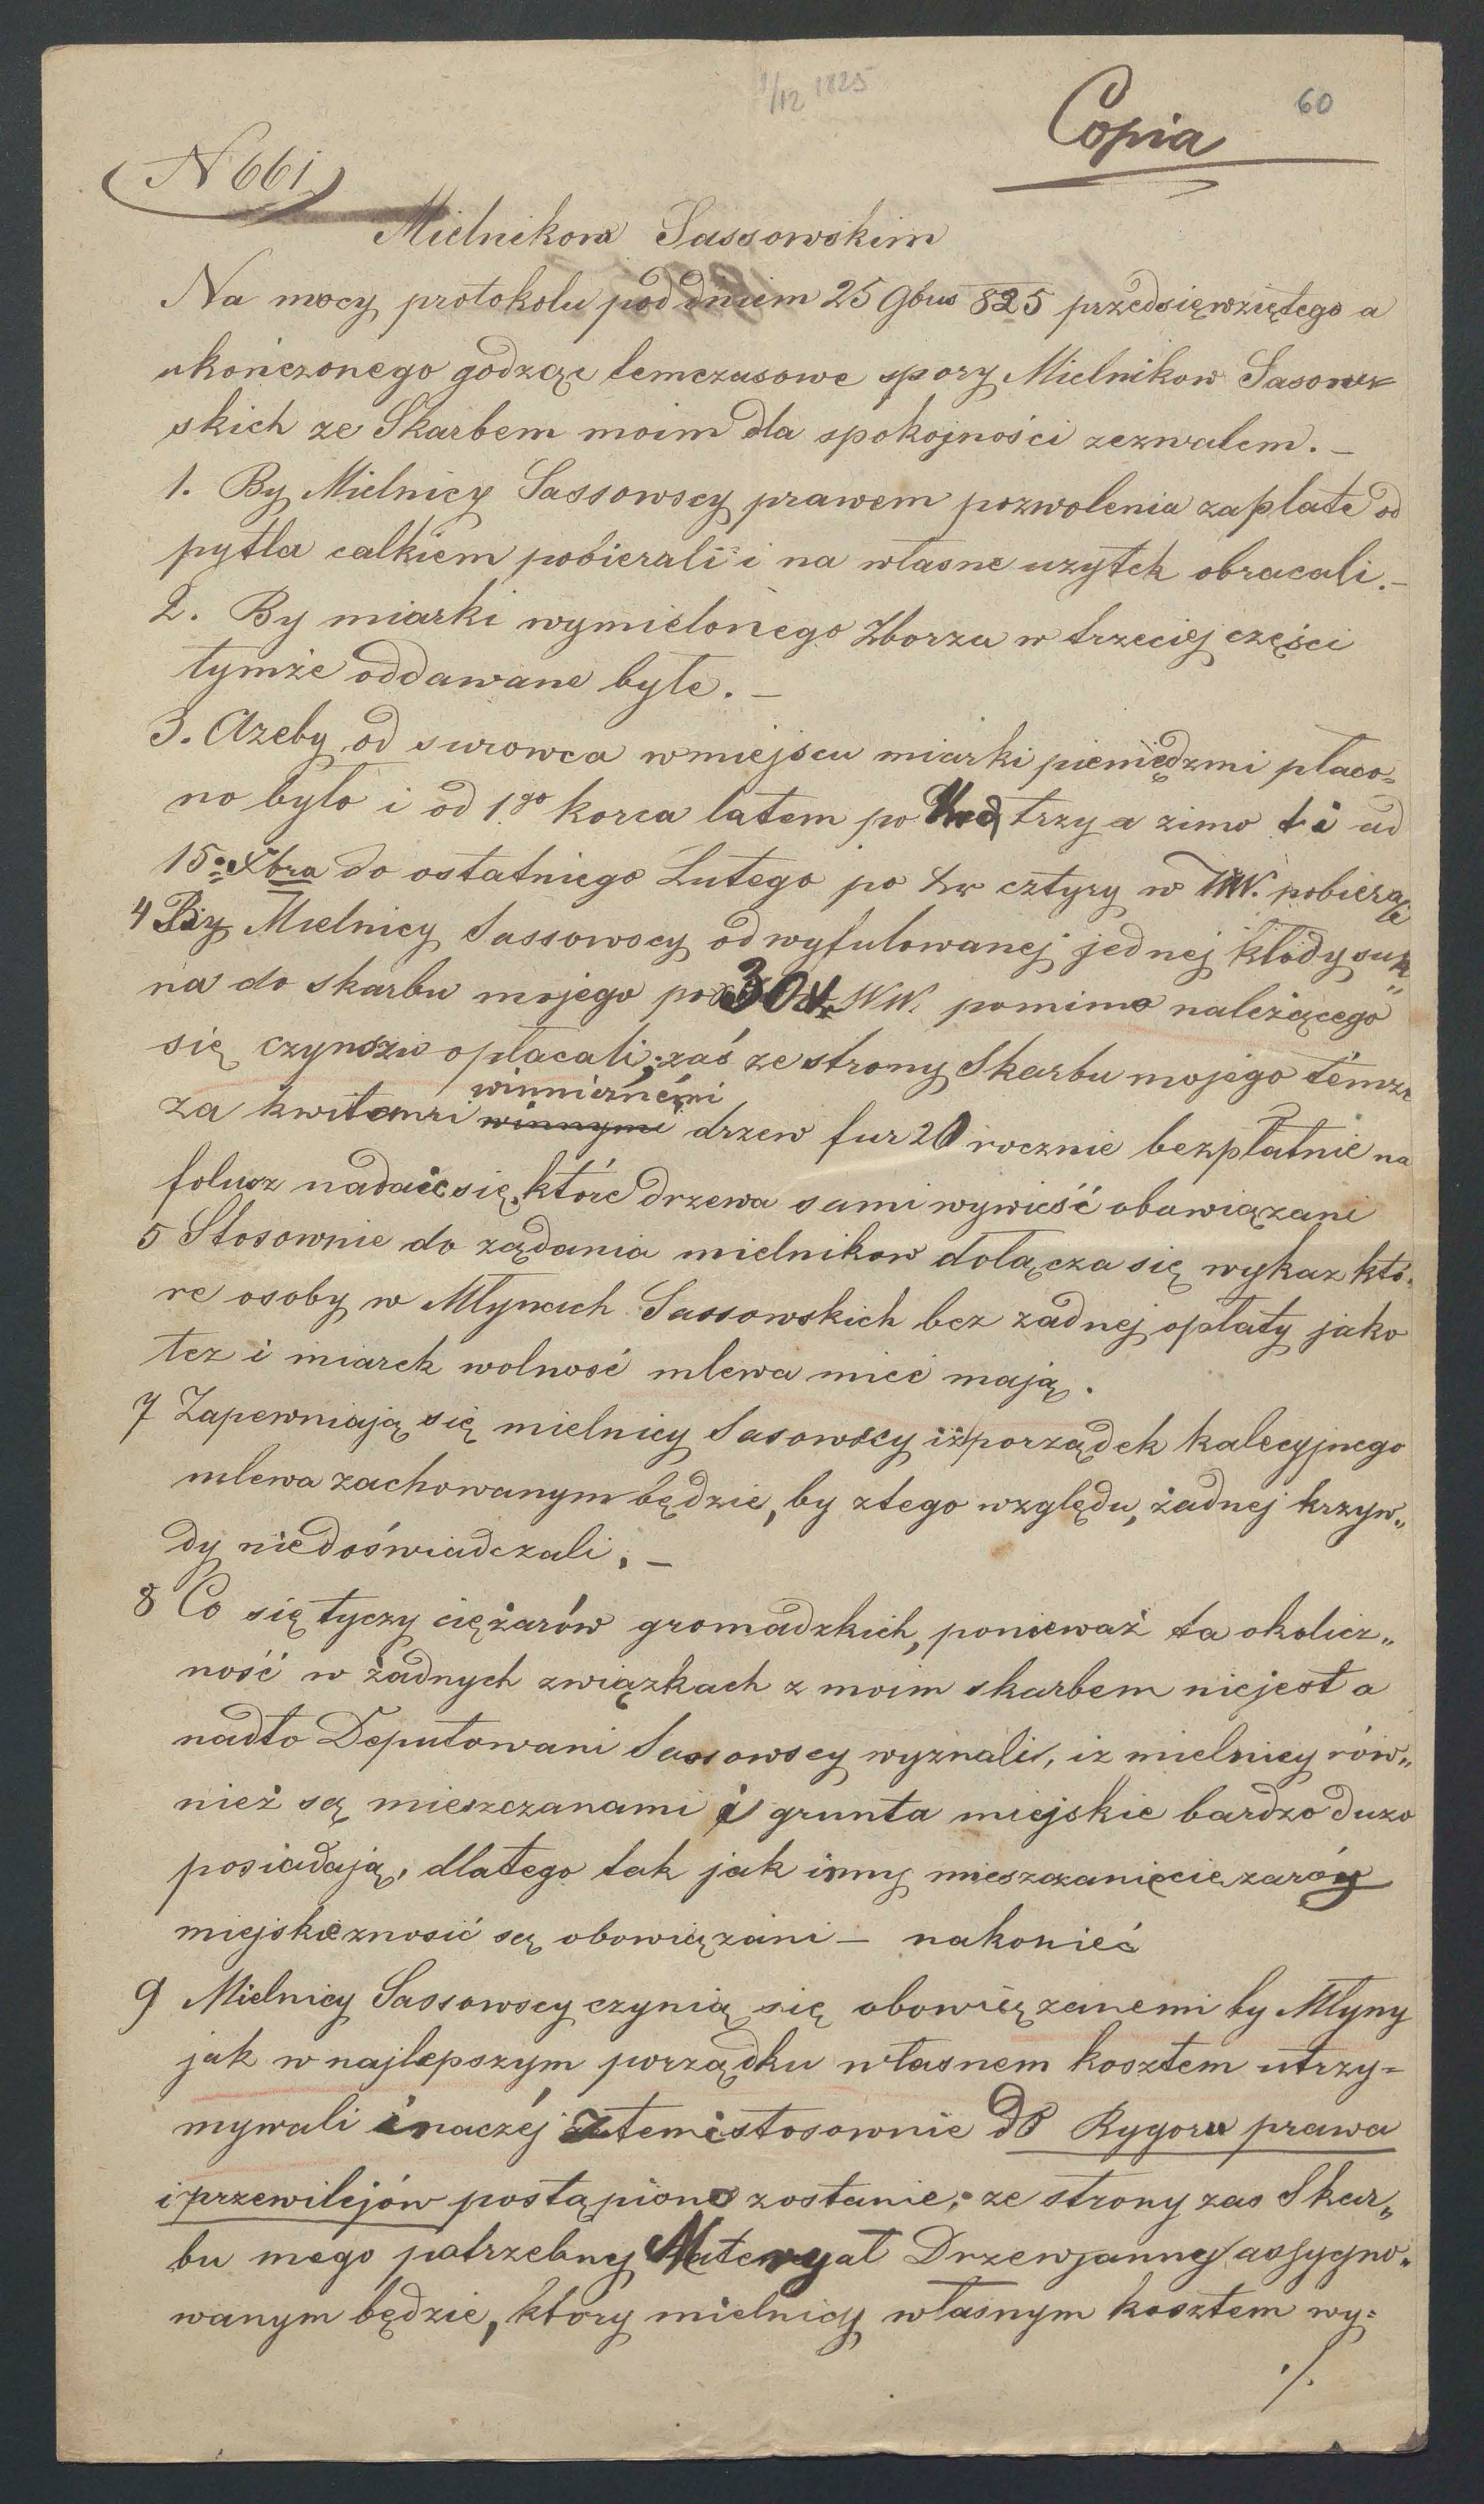 1/12 1825
60
Copia
N 661
Mielnikom Sassowskim
Na mocy protokolu pod dniem 25 9bus 825 przedsięwziętego a
ukończonego godząc temczasowe spory Mielnikow Sasow=
skich ze Skarbem moim dla spokojności zezwalem. —
1. By Mielnicy Sassowscy prawem pozwolenia zaplate od
pytla calkiem pobierali i na własne uzytek obracali. —
2. By miarki wymielonego Zborza w trzeciej części
tymże oddawane byłe. —
3. Azeby od surowca wmiejscu miarki pieniędzmi płaco=
no było i od 1go korca latem po trzy a zimo t i od
15. Xbra do ostatniego Lutego po xr cztyry w WW. pobierali
4 By Mielnicy Sassowscy od wyfulowanej jednej kłody suk„
na do skarbu mojego po 30 xr WW. pomimo należącego
się czynszu opłacali; zaś ze strony Skarbu mojego témże
za kwitami winnymi drzew fur 20 rocznie bezpłatnie na
folusz nadaie się, które drzewa sami wywieść obowiązani
5 Stosownie do ządania mielnikow dołącza się wykaz któ=
re osoby w Młynach Sassowskich bez zadnej opłaty jako
tez i miarek wolność mlewa mieć mają.
7 Zapewniają się mielnicy Sasowscy iż porządek kalecyjnego
mlewa zachowanym będzie, by ztego względu, żadnej krzyw„
dy niedoświadczali. —
8 Co się tyczy ciężarów gromadzkich, ponieważ ta okolicz„
ność w żadnych związkach z moim skarbem niejest a
nadto Deputowani Sassowscy wyznali, iz mielnicy rów„
nież są mieszczanami i grunta miejskie bardzo duzo
posiadają, dlatego tak jak inny mieszczanie cięzarów
miejskie znosić są obowiązani — nakonieć
9 Mielnicy Sassowscy czynią się obowiązanemi by Młyny
jak w najlepszym porządku własnem kosztem utrzy=
mywali inaczéj z temi stosownie do Rygoru prawa
i przewilejów postąpiono zostanie; ze strony zas Skar„
bu mego potrzebny Materyał Drzewjanny assygno„
wanym będzie, który mielnicy własnym kosztem wy=
./.